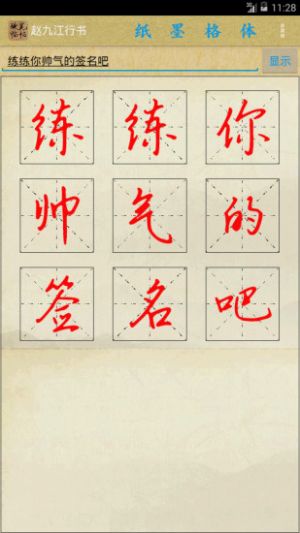 11:28
赵九江行书 纸 墨 格 体
练练你帅气的签名吧 显示
练 练 你
帅 气 的
签 名 吧